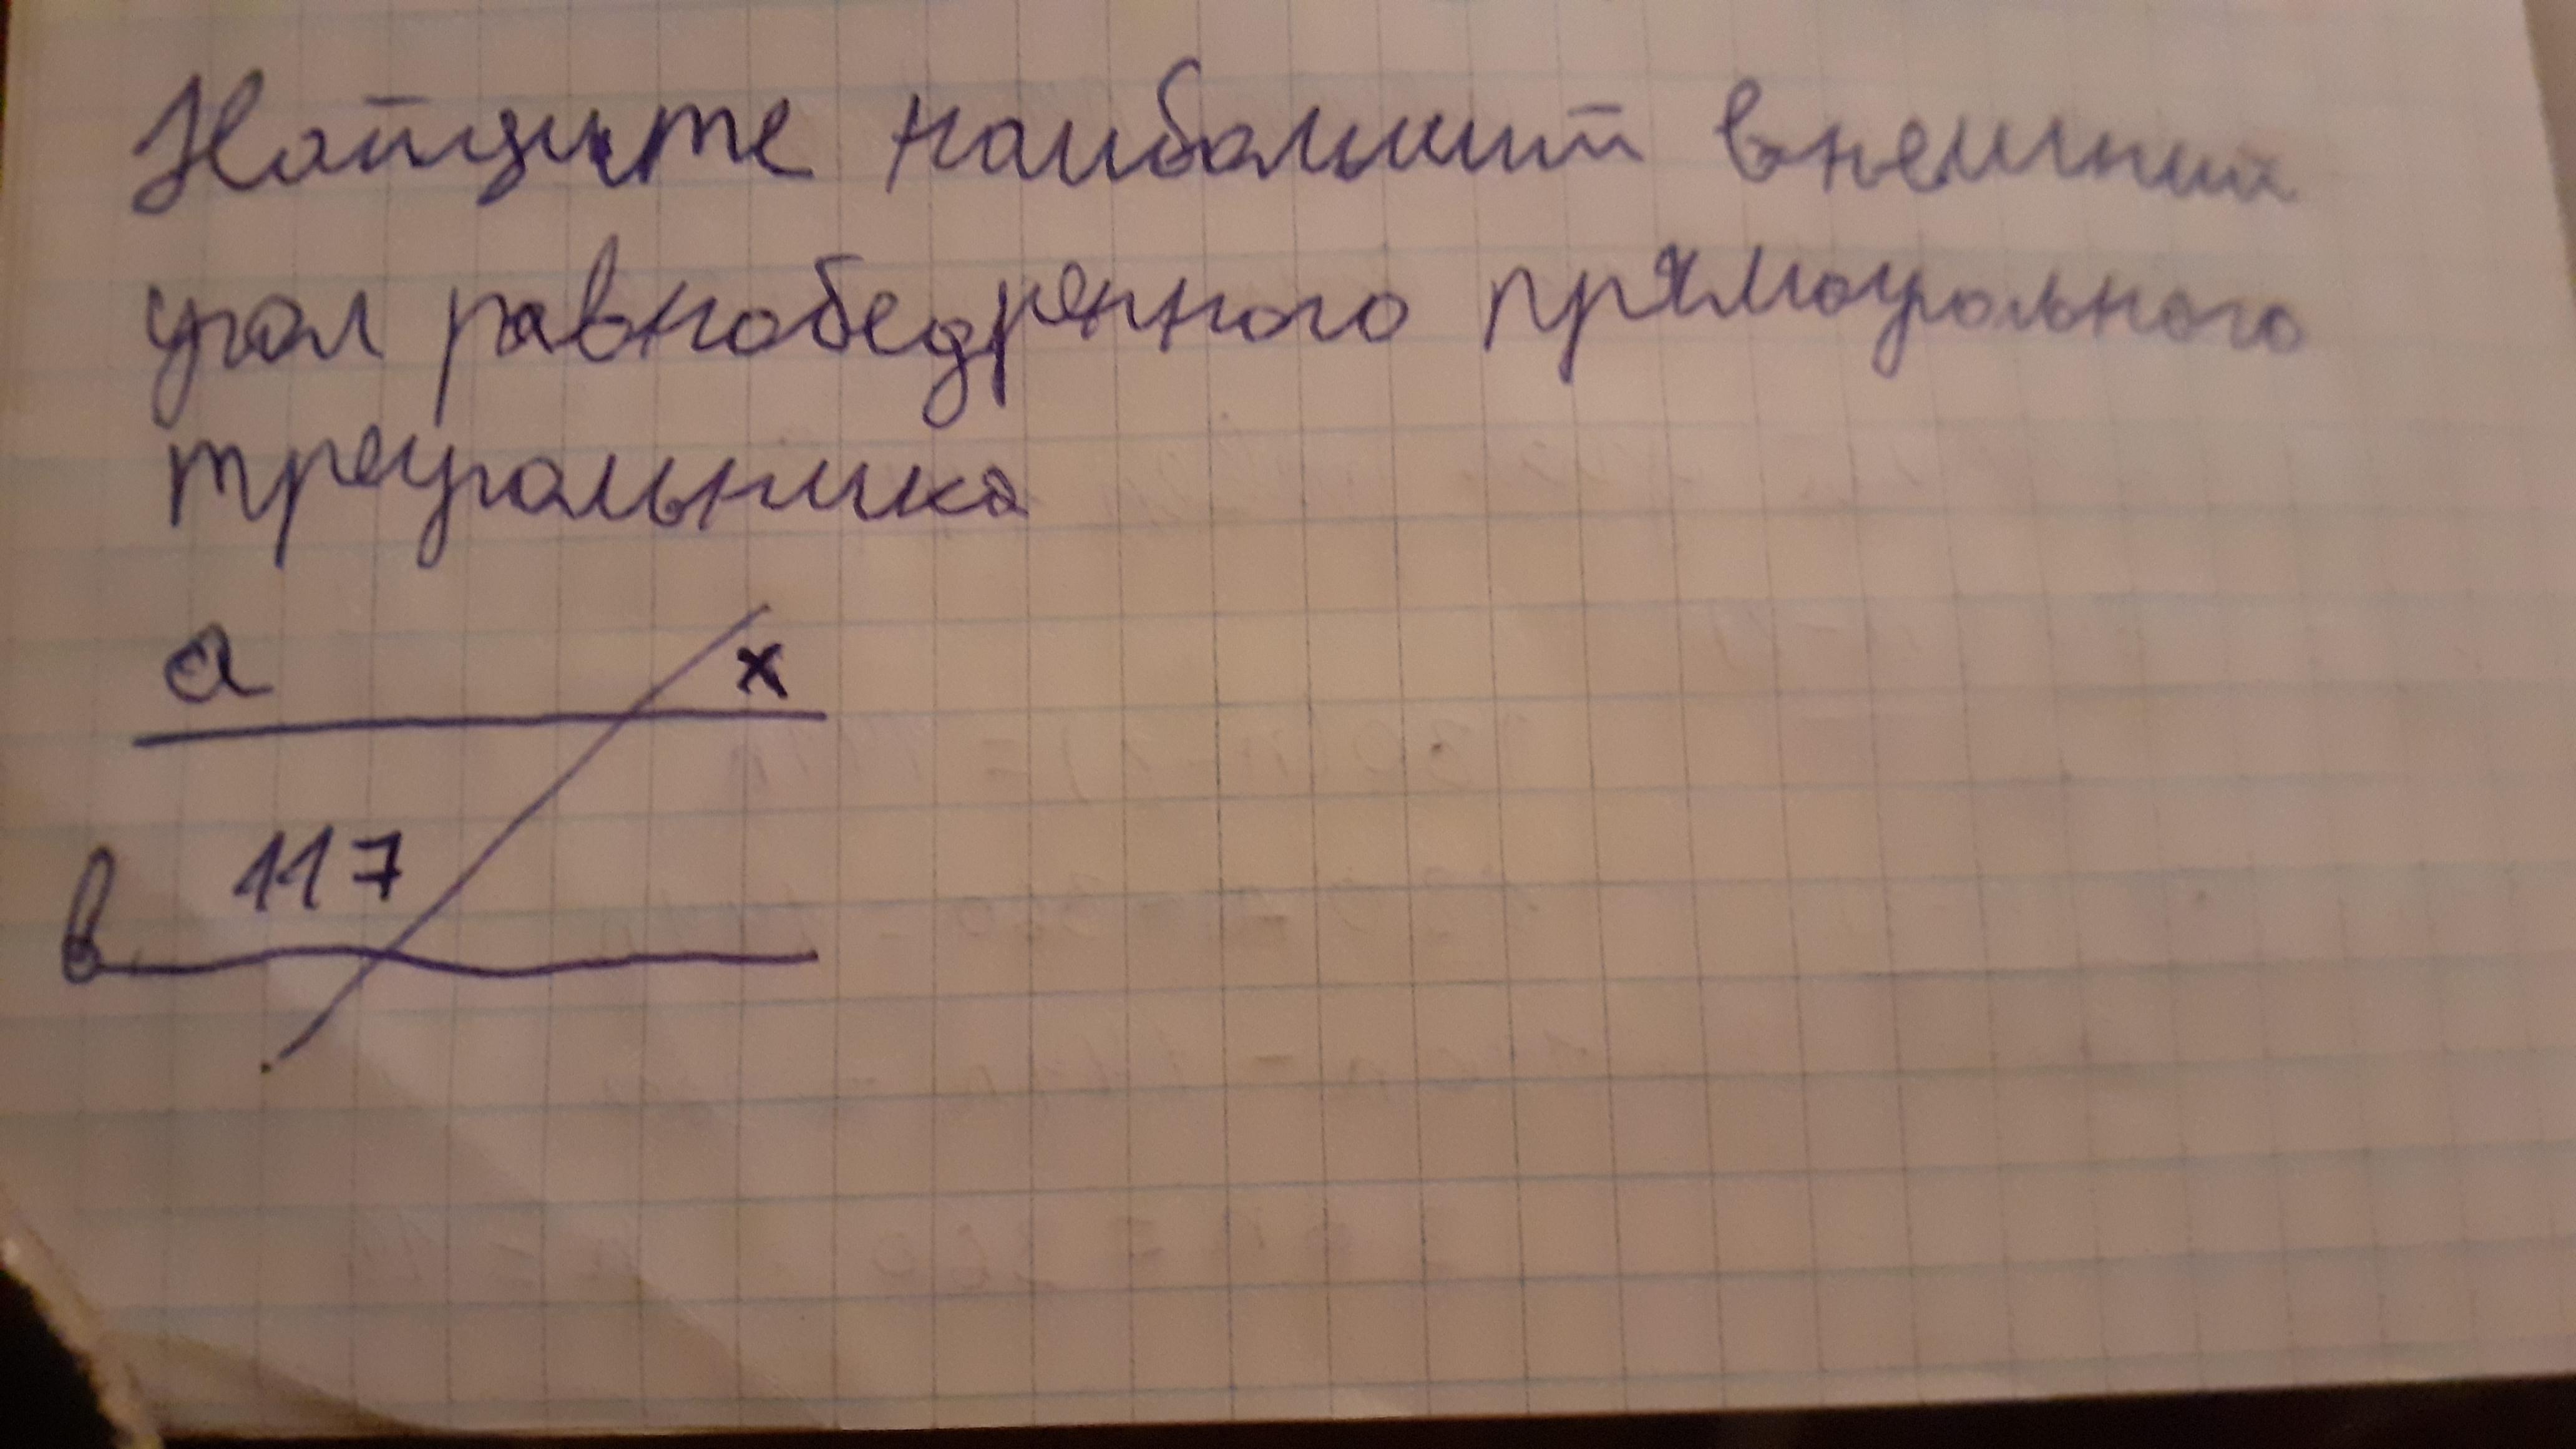 Найдите наибольший внешний
угол равнобедренного прямоугольного
треугольника
а
х
117
в